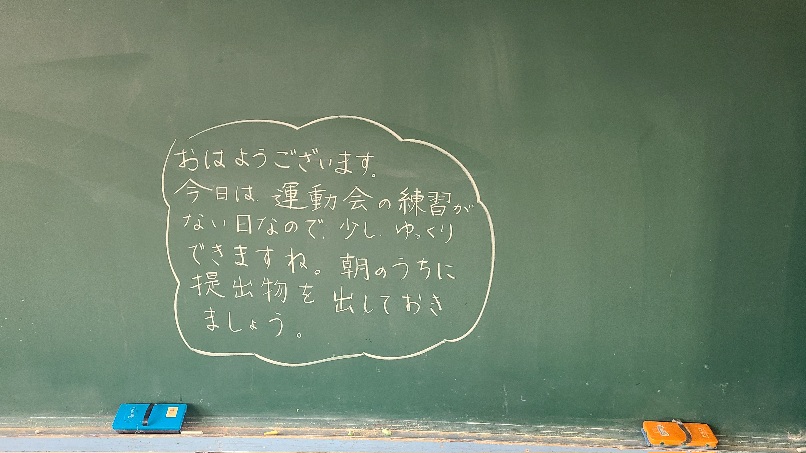 おはようございます。
今日は、運動会の練習が
ない日なので、少し、ゆっくり
できますね。朝のうちに
提出物を出しておき
ましょう。